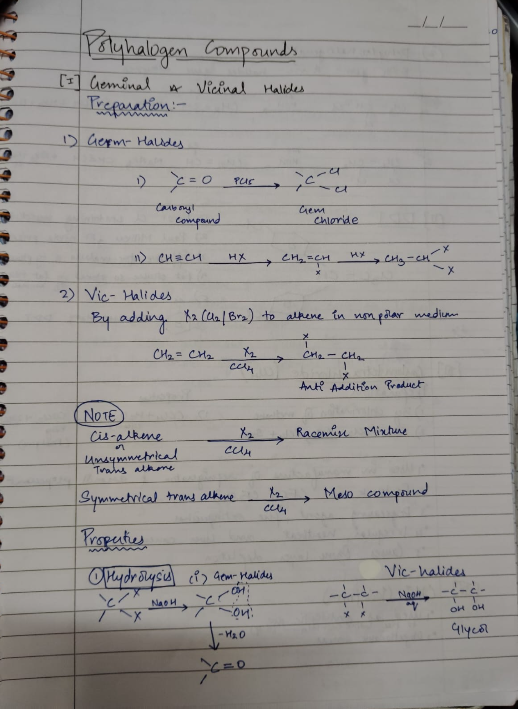 _/_/_
Polyhalogen Compounds
[I] Geminal & Vicinal Halides
Preparation:-
1) Gem-Halides
i) >C=O PCl5 → >C Cl Cl
Carbonyl compound Gem chloride
ii) CH≡CH HX → CH2=CH X HX → CH3-CH X X
2) Vic-Halides
By adding X2 (Cl2/Br2) to alkene in non polar medium
CH2=CH2 X2 CCl4 → X CH2-CH2 X
Anti Addition Product
NOTE
Cis-alkene or Unsymmetrical Trans alkene X2 CCl4 → Racemise Mixture
Symmetrical trans alkene X2 CCl4 → Meso compound
Properties
① Hydrolysis (i) Gem-Halides Vic-halides
>C X X NaOH → >C OH OH -C-C- X X NaOH aq → -C-C- OH OH
Glycol
↓ -H2O
>C=O